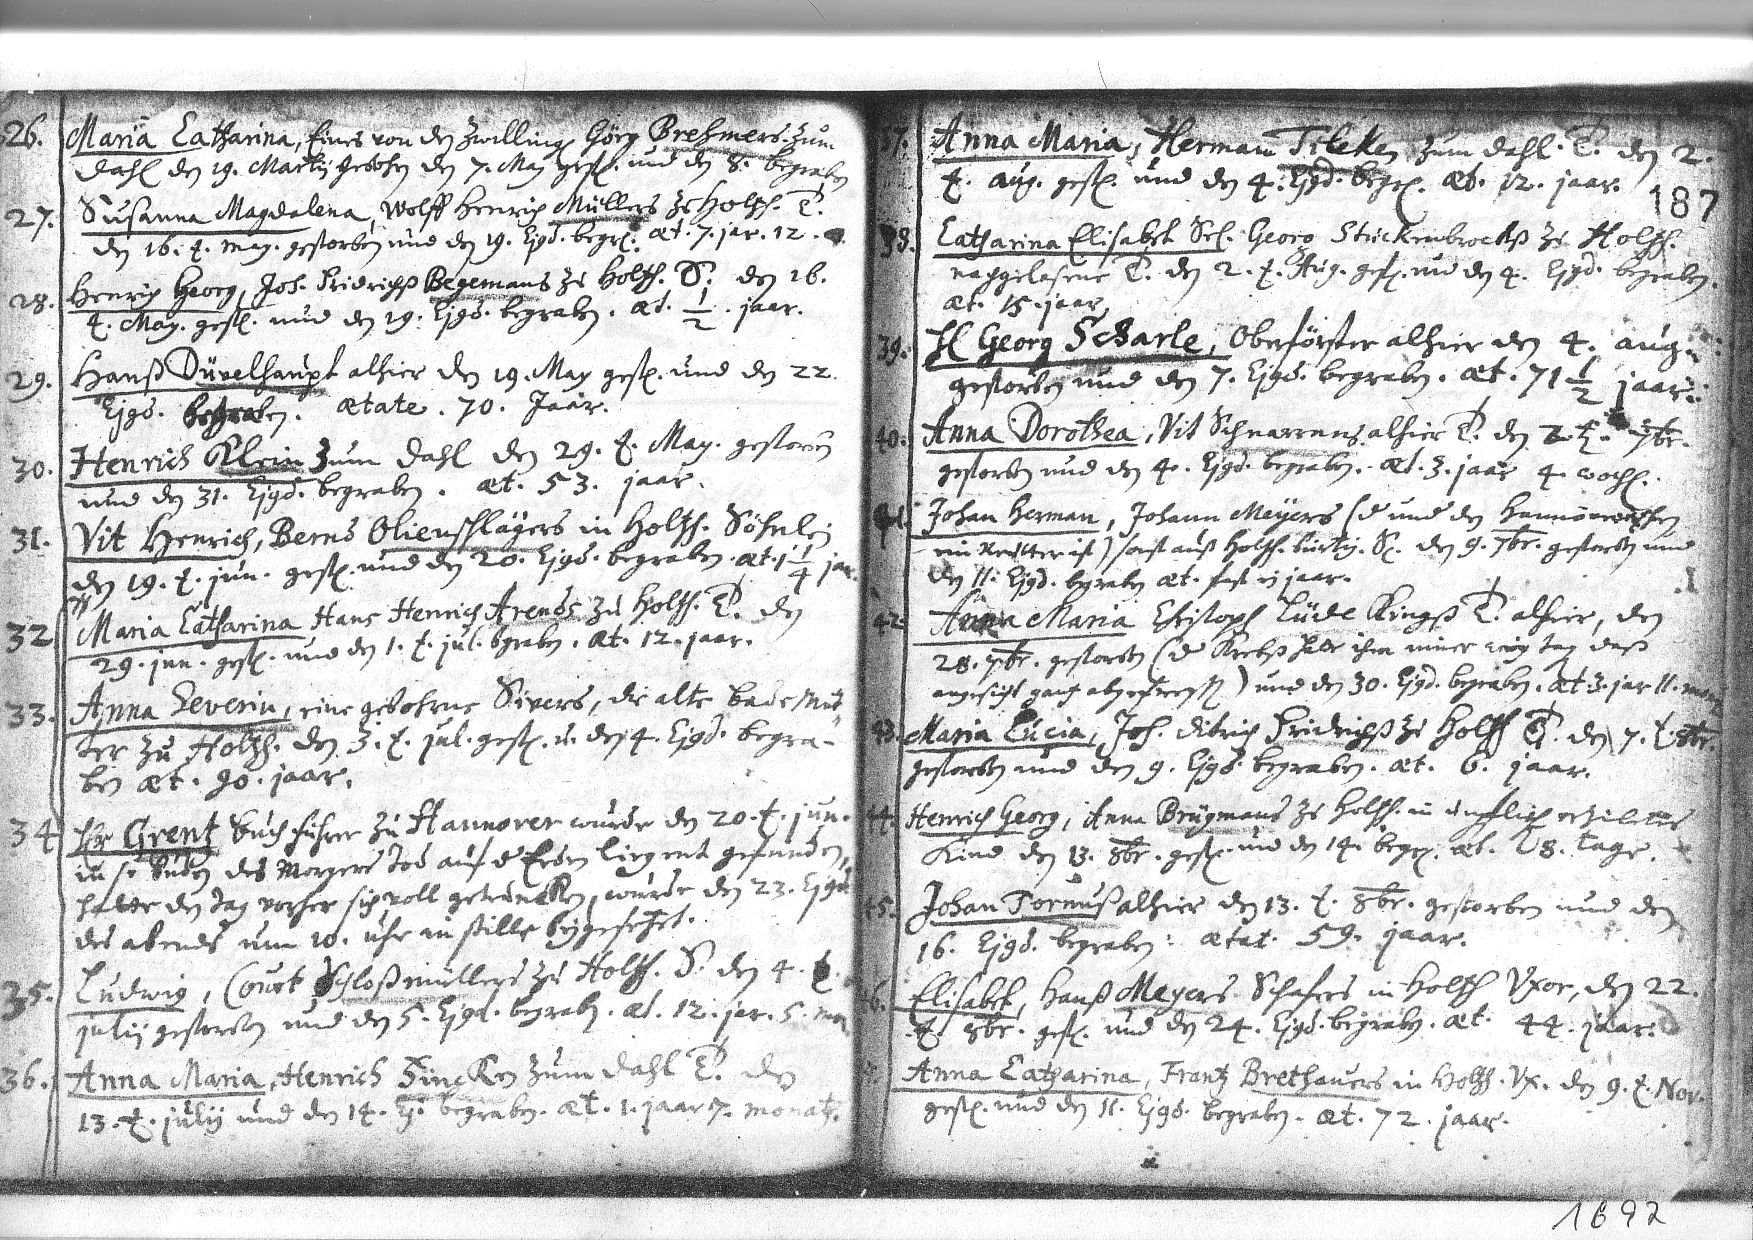 26. Maria Catharina, Eines von den Zwilling Görg Brehmers zum
Dahl den 19. Martij gebohren den 7. May gest. und den 8. begraben
27. Susanna Magdalena, Wolff Henrich Müllers zu Holtzh. T.
den 16. t. may. gestorben und den 19. Ejgd. begr. æt. 7. jar. 12.
28. Henrich Georg, Joh. Fridrichß Begemans zu Holtzh. S. den 16.
t. May. gest. und den 19. Ejgd. begraben. æt. 1/2. jaar.
29. Hanß Düvelhaupt alhier den 19. May gest. und den 22.
Ejgd. begraben. ætate. 70. Jaar.
30. Henrich Klein zum Dahl den 29. t. May. gestorbē
und den 31. Ejgd. begraben. æt. 53. jaar.
31. Vit Henrich, Bernd Olienschlägers in Holtzh. Söhnlein
den 19. t. jun. gest. und den 20. Ejgd. begraben. æt. 1 1/4 jar.
32 Maria Catharina Hans Henrich Arends zu Holtzh. T. den
29. jun. gest. und den 1. t. jul. begraben. æt. 12. jaar.
33. Anna Severin, eine gebohrne Sivers, die alte bademut-
ter zu Holtzh. den 3. t. jul. gest. u. den 4. Ejgd. begra-
ben æt. 90. jaar.
34 Hr Grentz buchführer zu Hannover wurde den 20. t. jun.
in sr buden des Morgens Tod auf d Erden liegent gefunden,
hatte den Tag vorher sich voll getruncken, wurde den 23. Ejgd.
des abends um 10. uhr in stille beygesetzet.
35. Ludwig, Court Schloßmüllers zu Holtzh. S. den 4. t.
julij gestorben und den 5. Ejgd. begraben. æt. 12. jar. 5. mon
36. Anna Maria, Henrich Fincken zum Dahl T. den
13. t. julij und den 14. Ej. begraben. æt. 1. jaar 7. monat.
37. Anna Maria, Herman Tileken zum Dahl. T. den 2.
t. aug. gest. und den 4. Ejgd. begr. æt. 12. jaar.
187
38. Catharina Elisabet Sel. Georg Strickenbrockß zu Holtzh.
nachgelasene T. den 2. t. Aug. gest. und den 4. Ejgd. begraben.
æt. 15. jaar
39. H Georg Scharle, Oberförster alhier den 4. aug.
gestorben und den 7. Ejgd. begraben. æt. 71 1/2 jaar.
40. Anna Dorothea, Vit Schnarrens alhier T. den 2. t. 7br.
gestorben und den 4. Ejgd. begraben. æt. 3. jaar 4. woch.
41. Johan Herman, Johann Meyers (d und den Hannöverschen
ein Reutter ist) sonst auß Holtzh. bürtig. S. den 9. 7br. gestorben und
den 11. Ejgd. begraben æt. fast ij jaar.
42. Anna Maria Christoph Lüdekingß T. alhier, den
28. 7br. gestorben (d Krebß hatte ihm
angesicht gantz ) und den 30. Ejgd. begraben. æt 3. jar 11. mon
43. Maria Lucia, Joh. Ditrich Fridrichß zu Holtzh T. den 7. t. 8br.
gestorben und den 9. Ejgd. begraben. æt. 6. jaar.
44. Henrich Georg, Anna Brügmans zu Holtzh. unehelich erzieltes
Kind den 13. 8br. gest. und den 14. begr. æt. 8. Tage.
45. Johan Tornuß alhier den 13. t. 8br. gestorben und den
16. Ejgd. begraben: ætat. 59. jaar.
6. Elisabet, Hanß Meyers Schäfers in Holtzh Uxor, den 22.
t. 8br. gest. und den 24. Ejgd. begraben. æt. 44. jaar.
Anna Catharina, Frantz Brethauers in Holtzh. Ux. den 9. t. Nov.
gest. und den 11. Ejgd. begraben. æt. 72. jaar.
1692